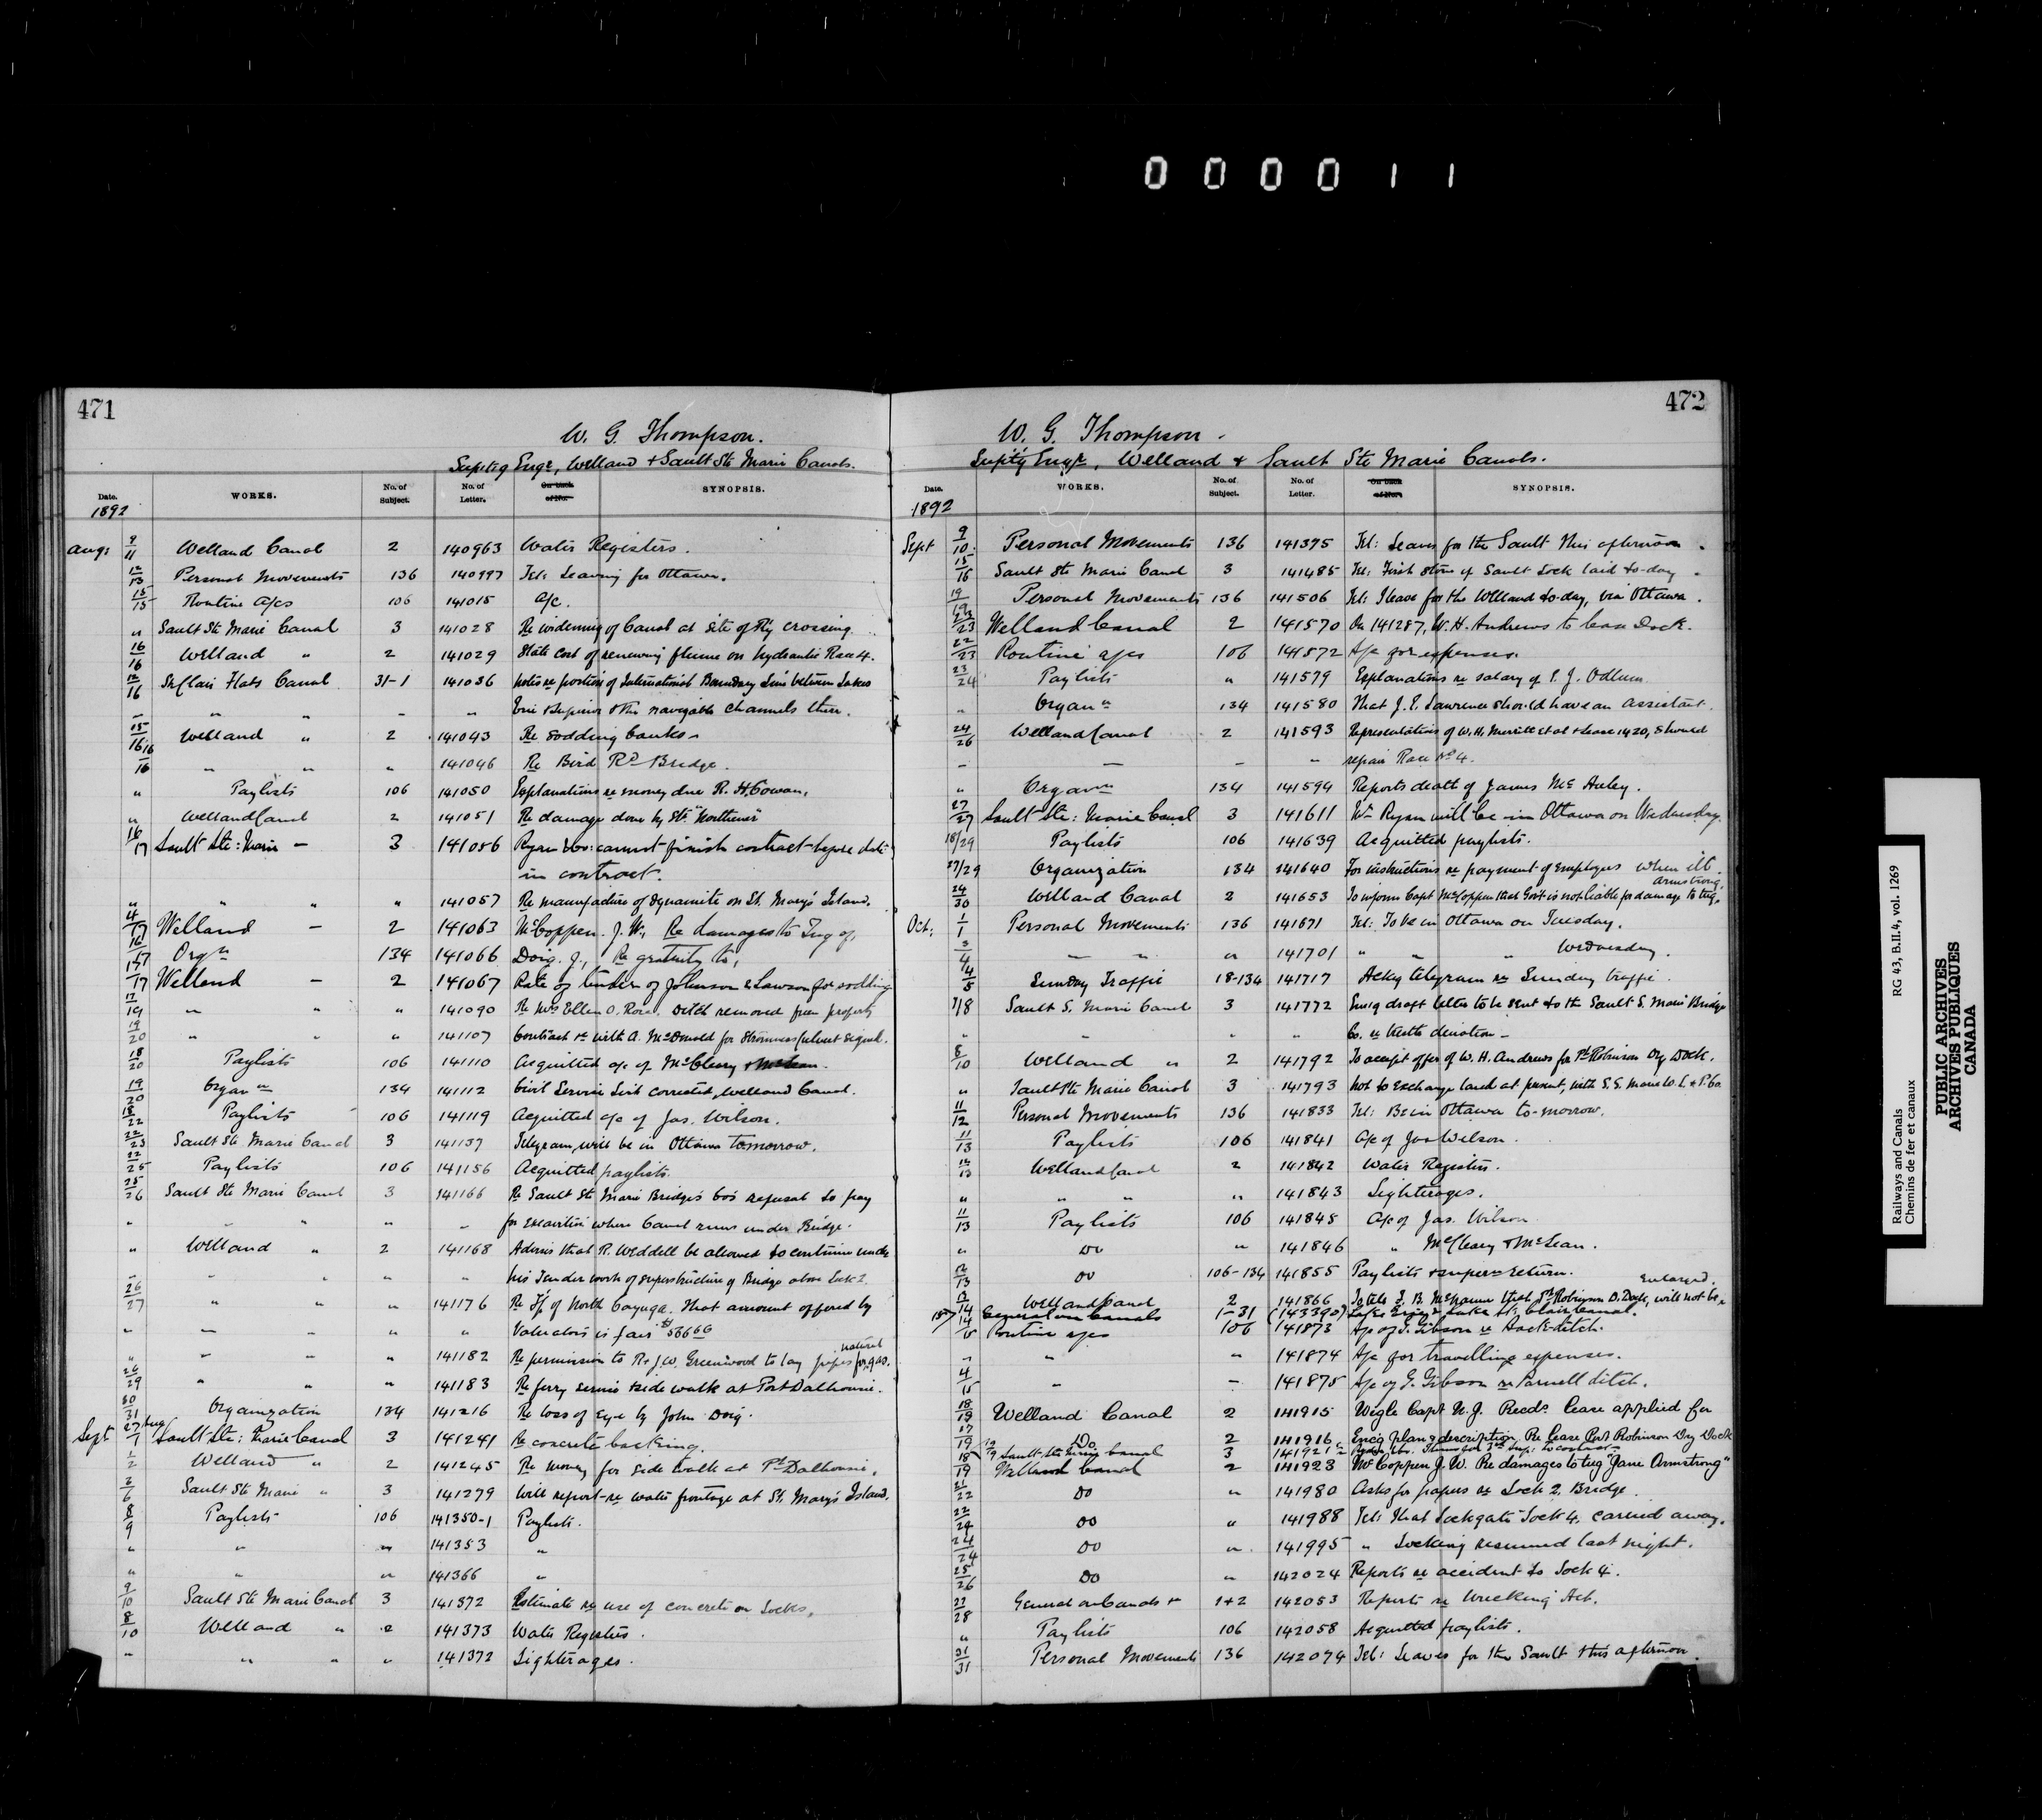 000011
471
W. G. Thompson.
Suptg Engr, Welland & Sault Ste Marie Canals.
Date. WORKS. No. of Subject. No. of Letter. On back of No. SYNOPSIS.
1892
Aug: 9/11 Welland Canal 2 140963 Water Registers.
12/13 Personal Movements 136 140997 Tel: Leaving for Ottawa.
15/15 Routine a/cs 106 141015 a/c.
" Sault Ste Marie Canal 3 141028 Re widening of Canal at site of Ry crossing.
16/16 Welland " 2 141029 State cost of renewing flume on hydraulic Race 4.
12/16 St Clair Flats Canal 31-1 141036 Notes re portion of International Boundary Line between Lakes
" " " - " Erie & Superior & the navigable channels there.
15/16 Welland " 2 141043 Re sodding banks
16/16 " " " 141046 Re Bird Rd Bridge.
" Paylists 106 141050 Explanations re money due R. H. Cowan.
" Welland Canal 2 141051 Re damage done by Str. "Northener"
16/17 Sault Ste: Marie - 3 141056 Ryan & Co: cannot finish contract before date
in contract.
" " " 141057 Re manufacture of dynamite on St. Mary's Island.
4/17 Welland - 2 141063 McCoppen. J. W., Re damages to Tug of,
16/17 Orgn 134 141066 Doig. J., Re gratuity to,
15/17 Welland - 2 141067 Rate of tender of Johnson & Lawson for sodding
17/19 " " " 141090 Re Mrs Ellen O. Rose. Ditch removed from property
19/20 " " " 141107 Contract re with A. McDonald for Stromness Culvert signed.
18/20 Paylists 106 141110 Acquitted a/c of McCleary & McLean.
19/20 Organn 134 141112 Civil Service List corrected, Welland Canal.
18/22 Paylists 106 141119 Acquitted a/c of Jas. Wilson.
22/23 Sault Ste. Marie Canal 3 141137 Telegram, will be in Ottawa tomorrow.
22/25 Paylists 106 141156 Acquitted paylists.
25/26 Sault Ste Marie Canal 3 141166 Re Sault Ste Marie Bridge's Co's refusal to pay
" " " " " for excavation where Canal runs under Bridge.
" Welland " 2 141168 Advises that R. Weddell be allowed to continue under
" " " " " his Tender work of superstructure of Bridge above Lock 2.
26/27 " " " 141176 Re Tp of North Cayuga. That amount offered by
" " " " " Valuators is fair $566.66
" " " " 141182 Re permission to R. & J. W. Greenwood to lay pipes for natural gas.
26/29 " " " 141183 Re ferry service & side walk at Port Dalhousie.
30/31 Organization 134 141216 Re loss of Eye by John Doig.
Sept 27 Aug/1 Sault Ste: Marie Canal 3 141241 Re concrete backing.
1/2 Welland " 2 141245 Re money for side walk at Pt Dalhousie.
2/6 Sault Ste Marie " 3 141279 Will report re water frontage at St. Mary's Island.
8/9 Paylists 106 141350-1 Paylists.
" " " 141353 "
" " " 141366 "
9/10 Sault Ste Marie Canal 3 141372 Estimate re use of concrete on Locks.
8/10 Welland " 2 141373 Water Registers.
" " " " 141372 Lighterages.
472
W. G. Thompson.
Suptg Engr, Welland & Sault Ste Marie Canals.
Date. WORKS. No. of Subject. No. of Letter. On back of No. SYNOPSIS.
1892
Sept 9/10 Personal Movements 136 141375 Tel: Leaves for the Sault this afternoon.
15/16 Sault Ste Marie Canal 3 141485 Tel: First stone of Sault Lock laid to-day.
19/19 Personal Movements 136 141506 Tel: I leave for the Welland to-day, via Ottawa.
22/23 Welland Canal 2 141570 On 141287, W. H. Andrews to lease Dock.
22/23 Routine a/cs 106 141572 A/c for expenses.
23/24 Paylists " 141579 Explanations re salary of E. J. Odlum
" Organn 134 141580 That J. E. Lawrence should have an assistant.
24/26 Welland Canal 2 141593 Representations of W. H. Merritt et al & lease 1420, should
" - - " repair Race No 4.
" Organn 134 141594 Reports death of James McAuley.
27/27 Sault Ste: Marie Canal 3 141611 Wm Ryan will be in Ottawa on Wednesday.
18/29 Paylists 106 141639 Acquitted paylists.
27/29 Organization 134 141640 For instructions re payment of Employees when ill.
24/30 Welland Canal 2 141653 To inform Capt McCoppen that Govt is not liable for damage to tug, Armstrong.
Oct: 1/1 Personal Movements 136 141671 Tel: To be in Ottawa on Tuesday.
3/4 " " " 141701 " " " Wednesday.
4/5 Sunday Traffic 18-134 141717 Ackg telegram re Sunday traffic.
7/8 Sault S. Marie Canal 3 141772 Encg draft letter to be sent to the Sault S. Marie Bridge
" " " " Co. re trestle deviation -
8/10 Welland " 2 141792 To accept offer of W. H. Andrews for Pt Robinson Dry Dock.
" Sault Ste Marie Canal 3 141793 Not to exchange land at present, with S. S. Marie W. L. & P. Co
11/12 Personal Movements 136 141833 Tel: Be in Ottawa to-morrow.
11/13 Paylists 106 141841 A/c of Jas Wilson.
12/13 Welland Canal 2 141842 Water Registers.
" " " " 141843 Lighterages.
11/13 Paylists 106 141845 A/c of Jas. Wilson
" Do " 141846 " McCleary & McLean.
12/13 Do 106-134 141855 Paylists & supern return.
13/14 Welland Canal 2 141866 To tell L. B. McNamee that Pt Robinson D. Dock, will not be Enlarged.
General on Canals 1-31 (143390) Lake Erie & Lake St. Clair Canal.
Routine a/cs 106 141873 A/c of G. Gibson re back-ditch.
" " " 141874 A/c for travelling expenses.
4/15 " " 141875 A/c of G. Gibson re Parnell ditch.
18/19 Welland Canal 2 141915 Wigle Capt N. J. Recds. lease applied for
17/19 Do 2 141916 Encg plan & description Re lease Port Robinson Dry Dock
Sault-Ste Marie Canal 3 141921
18/19 Welland Canal 2 141923 McCoppen J. W. Re damages to tug "Jane Armstrong"
21/22 Do " 141980 Asks for papers re Lock 2, Bridge.
22/24 Do " 141988 Tel: That Lockgate Lock 4, carried away.
24/24 Do " 141995 " Locking resumed last night.
25/26 Do " 142024 Reports re accident to Lock 4.
27/28 General on Canals 1+2 142053 Reports re Wrecking Act.
" Paylists 106 142058 Acquitted paylists.
31/31 Personal Movements 136 142074 Tel: Leaves for the Sault this afternoon.
Railways and Canals RG 43, B.II.4, vol. 1269
Chemins de fer et canaux
PUBLIC ARCHIVES
ARCHIVES PUBLIQUES
CANADA